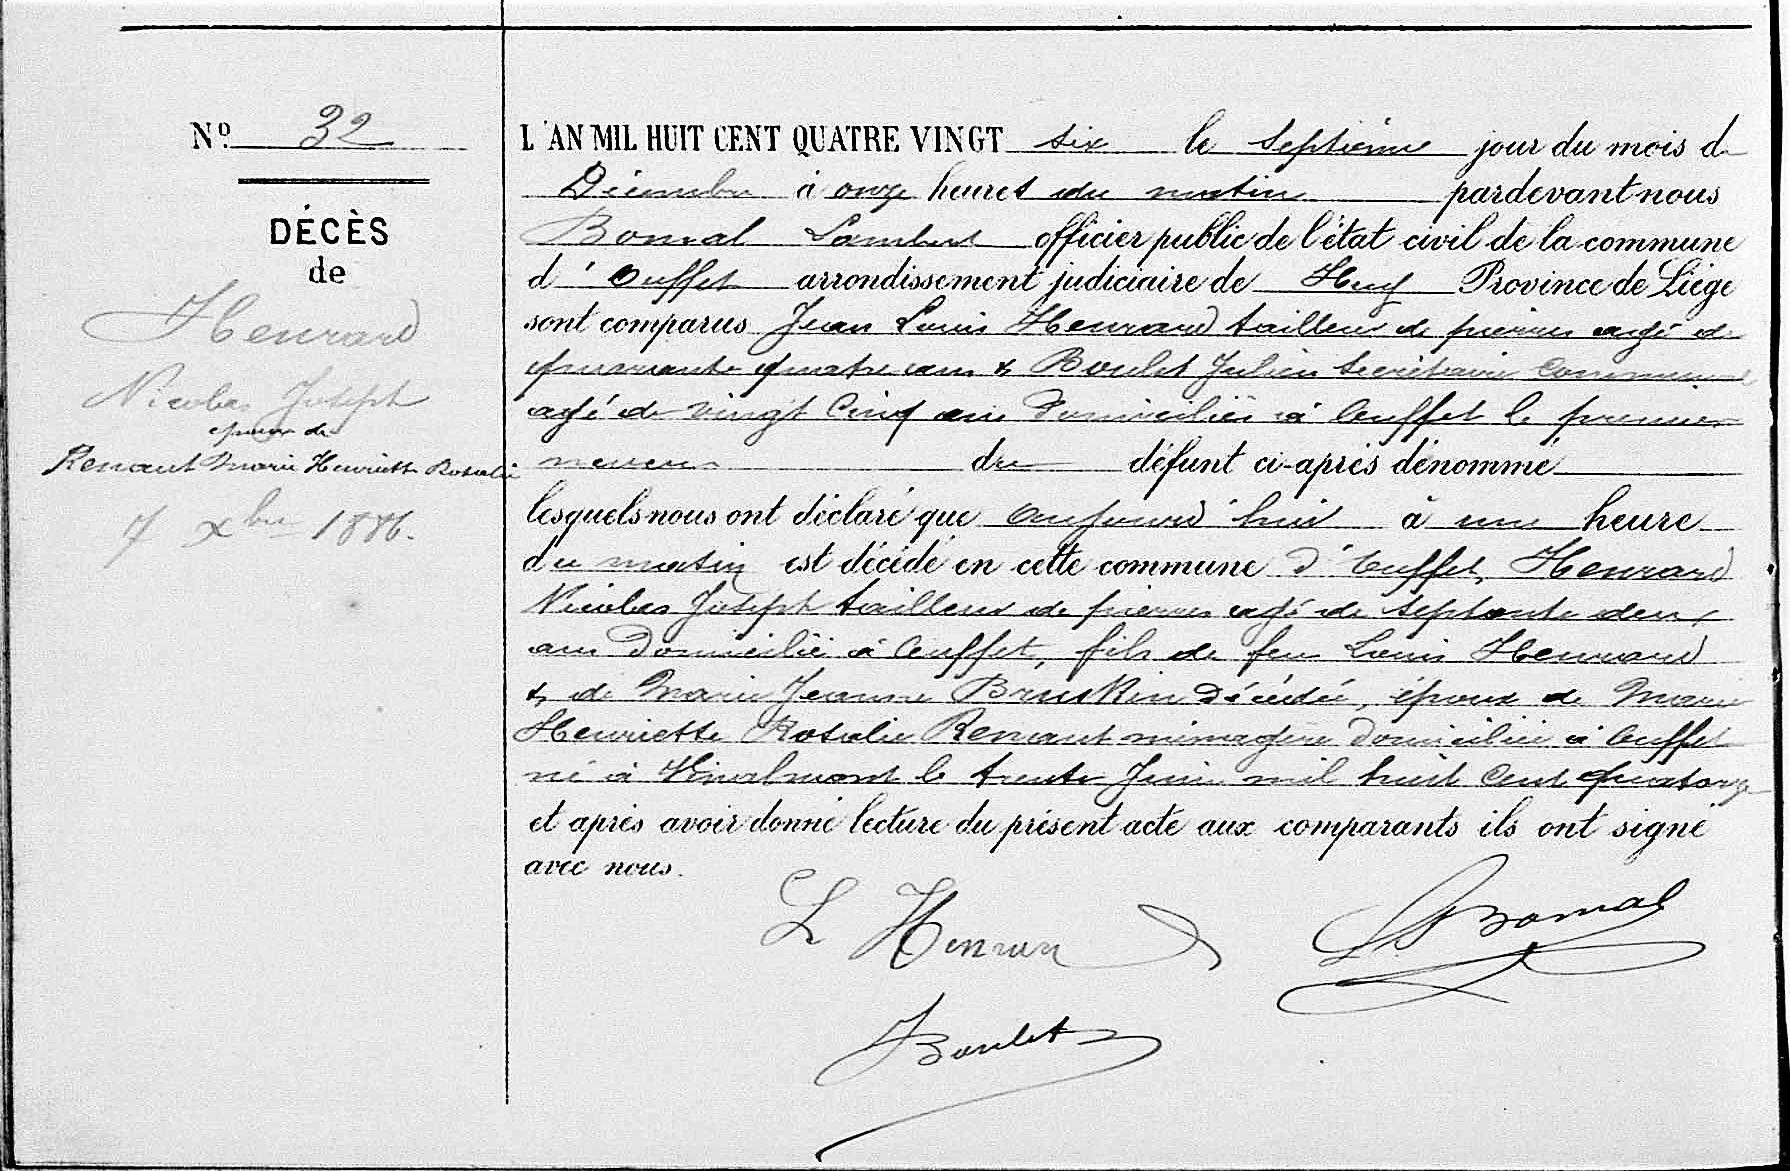 N° 32
DÉCÈS
de
Henrard
Nicolas Joseph
époux de
Renaut Marie Henriette Rosalie
7 Xbre 1886.
L'AN MIL HUIT CENT QUATRE VINGT six le septième jour du mois de
Décembre à onze heures du matin pardevant nous
Bomal Lambert officier public de l'état civil de la commune
d' Ouffet arrondissement judiciaire de Huy Province de Liége
sont comparus Jean Louis Henrard tailleur de pierres agé de
quarante quatre ans & Boulet Julien Secrétaire Communal
agé de vingt cinq ans Domiciliés à Ouffet le premier
neveu du défunt ci-après dénommé
lesquels nous ont déclaré que aujourd'hui à une heure
du matin est décédé en cette commune d'Ouffet, Henrard
Nicolas Joseph tailleur de pierres agé de septante deux
ans Domicilié à Ouffet, fils de feu Louis Henrard
& de Marie Jeanne Bruskin Décédée, époux de Marie
Henriette Rosalie Renaut ménagère Domiciliée à Ouffet
né à Vinalmont le trente Juin mil huit Cent quatorze
et après avoir donné lecture du présent acte aux comparants ils ont signé
avec nous.
L Henrar
L Bomal
J Boulet